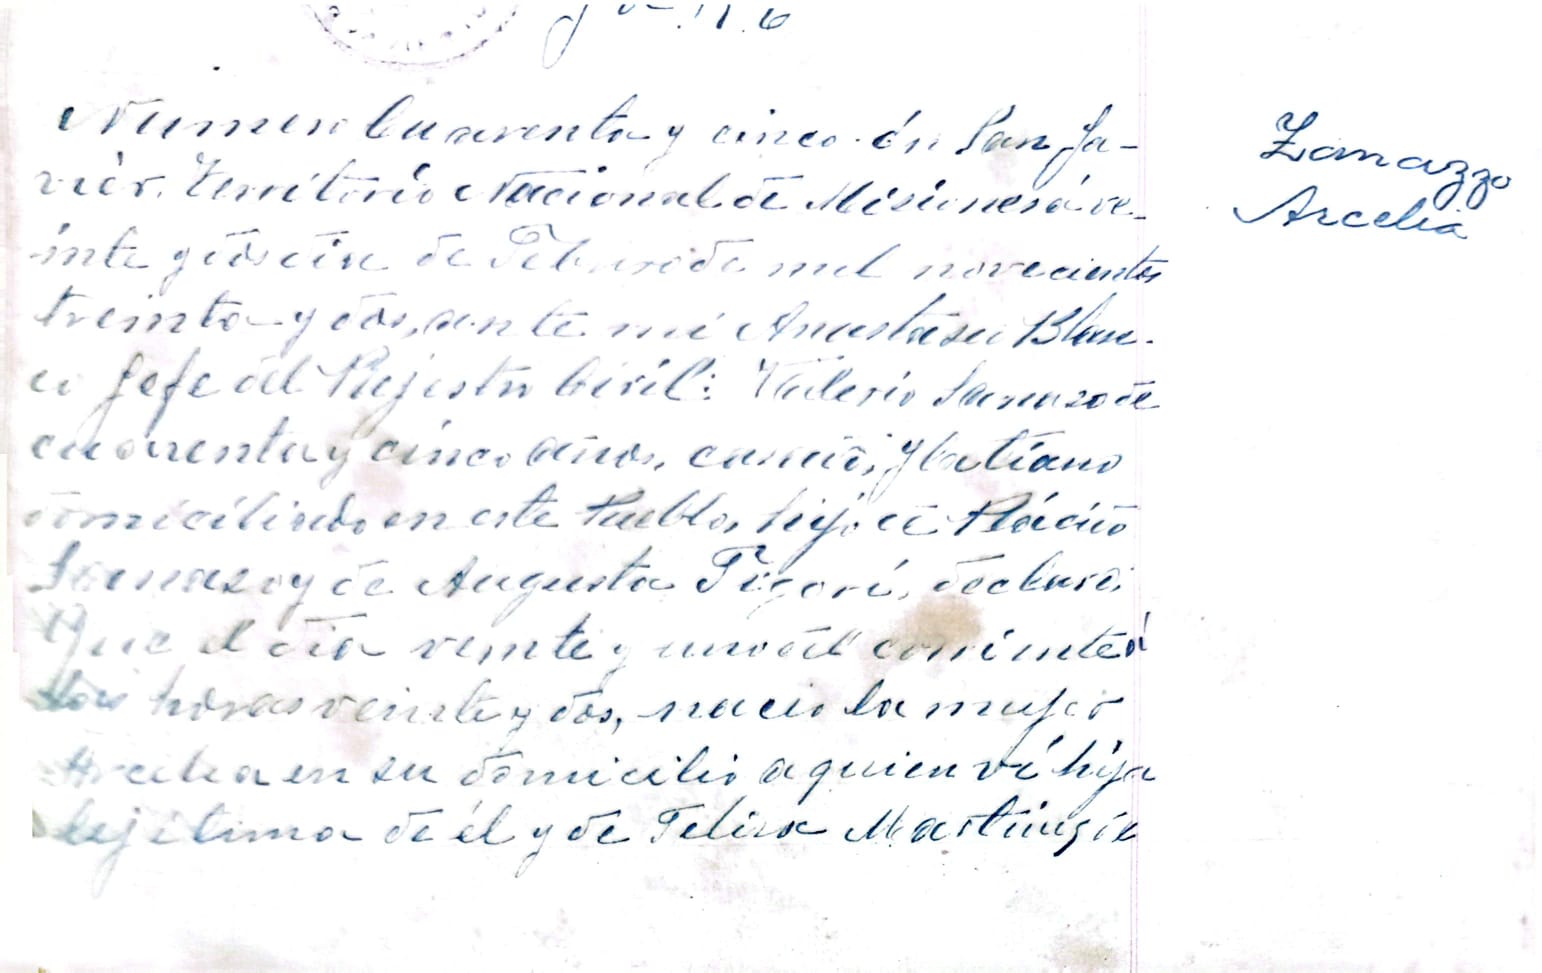 Numero Cuarenta y cinco. én San Ja-
viér. Territorio Nacional de Misiones á ve-
inte y dos dia de Febrero de mil novecientos
treinta y dos, ante mi Anastasio Blan-
co Jefe del Rejistro Civil: Valerio Samaso de
cuarenta y cinco años, casado, Ytatiano
domiciliado en este Pueblo, hijo de Plácido
Samaso y de Augusta declaró:
Que el dia veinte y uno del corriente á
las horas veinte y dos, nacio la mujer
Arcelia en su domicilio a quien ví hija
lejitima de él y de Felisa
Zamazzo
Arcelia